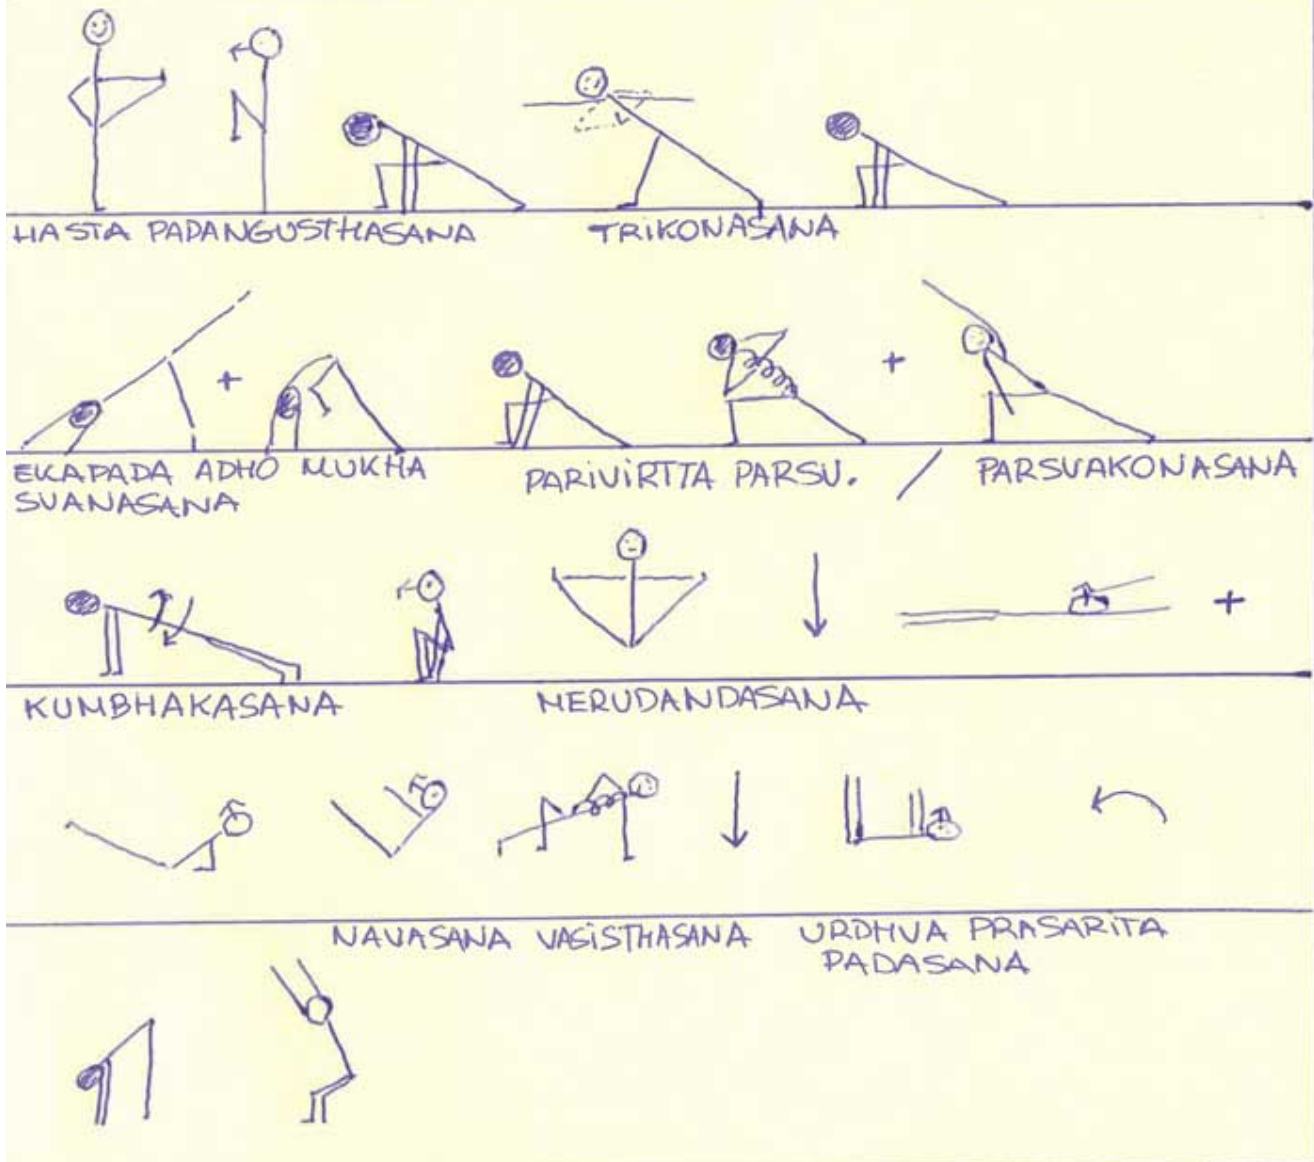 HASTA PADANGUSTHASANA TRIKONASANA
+
+
EKAPADA ADHO MUKHA PARIVIRTTA PARSU. / PARSVAKONASANA
SVANASANA
+
KUMBHAKASANA MERUDANDASANA
NAVASANA VASISTHASANA URDHVA PRASARITA
PADASANA